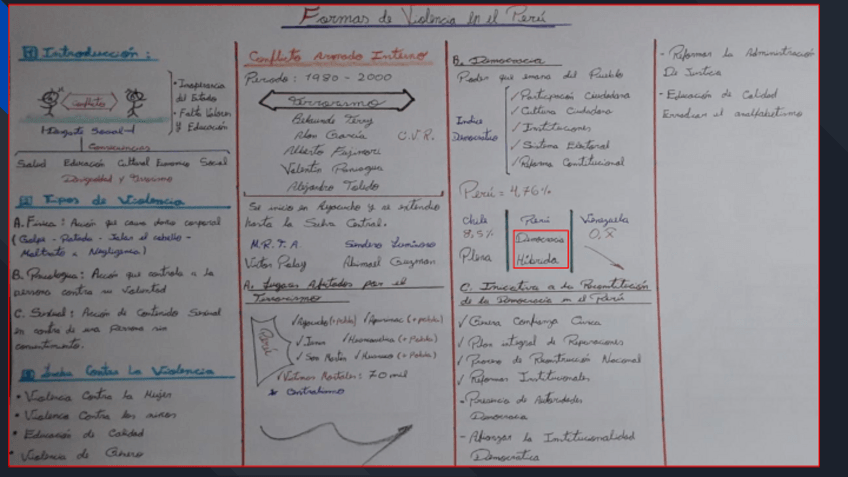 Formas de Violencia en el Perú
Introducción:
Conflicto
- Inoperancia
del Estado
- Falta Valores
y Educación
Desgaste Social
Consecuencias
Salud Educación Cultural Economico Social
Desigualdad y Terrorismo
Tipos de Violencia
A. Fisica: Acción que causa daño corporal
(Golpe - Patada - Jalar el cabello -
Maltrato x Negligencia)
B. Psicologica: Acción que controla a la
persona contra su Voluntad
C. Sexual: Acción de Contenido Sexual
en contra de una Persona sin
consentimiento.
Lucha Contra La Violencia
• Violencia Contra la Mujer
• Violencia Contra los niños
• Educación de Calidad
• Violencia de Género
Conflicto Armado Interno
Periodo: 1980 - 2000
Terrorismo
Belaunde Terry
Alan García
C.V.R.
Alberto Fujimori
Valentin Paniagua
Alejandro Toledo
Se inicio en Ayacucho y se extendio
hasta la Selva Central.
M.R.T.A. Sendero Luminoso
Victor Polay Abimael Guzman
A. Lugares Afectados por el
Terrorismo
Perú
✓ Ayacucho ✓ Apurimac
✓ Junin ✓ Huancavelica
✓ San Martin ✓ Huanuco
✓ Victimas Mortales: 70 mil
* Centralismo
B. Democracia
Poder que emana del Pueblo
Indice
Democratico
✓ Participación Ciudadana
✓ Cultura Ciudadana
✓ Instituciones
✓ Sistema Electoral
✓ Reforma Constitucional
Perú = 4,76%
Chile Perú Venezuela
8,5%
Democracia
Plena
Hibrida
C. Iniciativa a la Reconstitución
de la Democracia en el Perú
✓ Genera Confianza Civica
✓ Plan integral de Reparaciones
✓ Proceso de Reconstrucción Nacional
✓ Reformas Institucionales
- Presencia de Autoridades
Democracia
- Afianzar la Institucionalidad
Democrática
- Reformar la Administración
De Justicia
- Educación de Calidad
Erradicar el analfabetismo